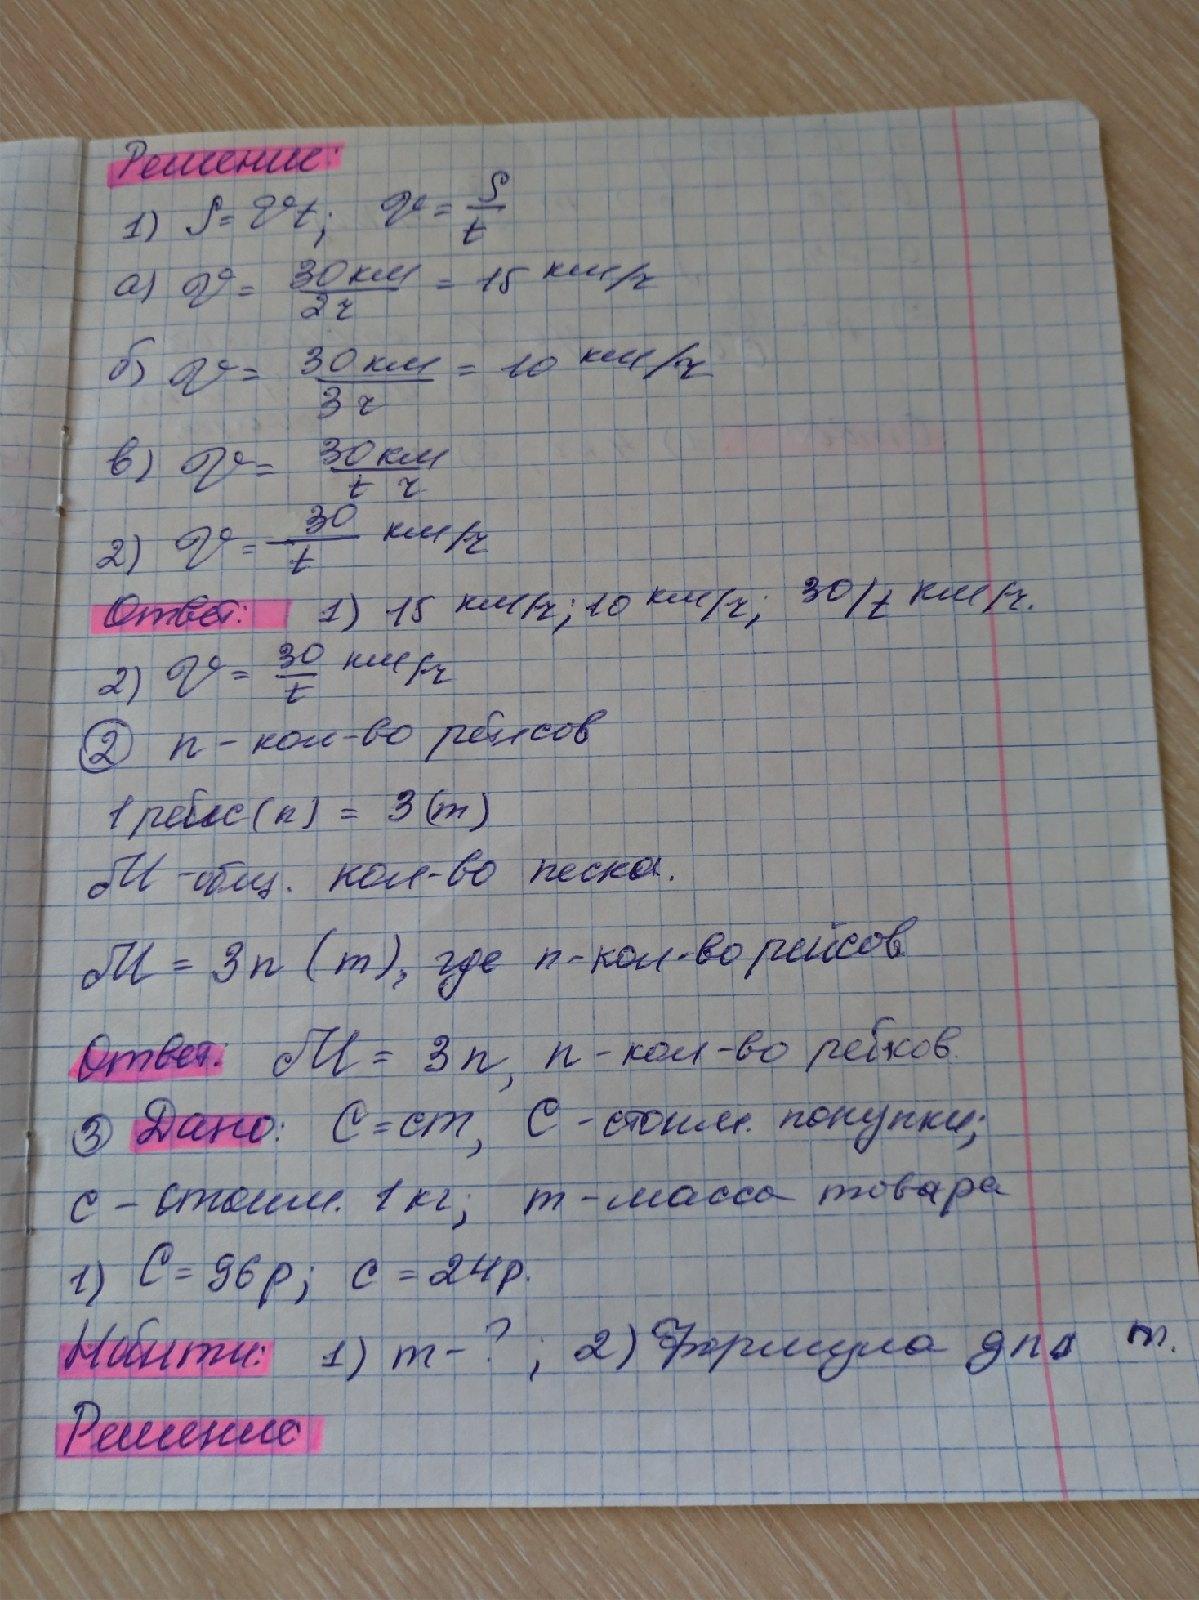 Решение:
1) S = vt; v = S/t
а) v = 30 км/2 ч = 15 км/ч
б) v = 30 км/3 ч = 10 км/ч
в) v = 30 км/t ч
2) v = 30/t км/ч
Ответ: 1) 15 км/ч; 10 км/ч; 30/t км/ч.
2) v = 30/t км/ч
2 n - кол-во рейсов
1 рейс (n) = 3 (т)
М - общ. кол-во песка.
М = 3n (т), где n - кол-во рейсов
Ответ: М = 3n, n - кол-во рейсов.
3 Дано: С = cm, С - стоим. покупки;
с - стоим. 1 кг; m - масса товара
1) С = 96 р; с = 24 р.
Найти: 1) m - ?; 2) Формула для m.
Решение